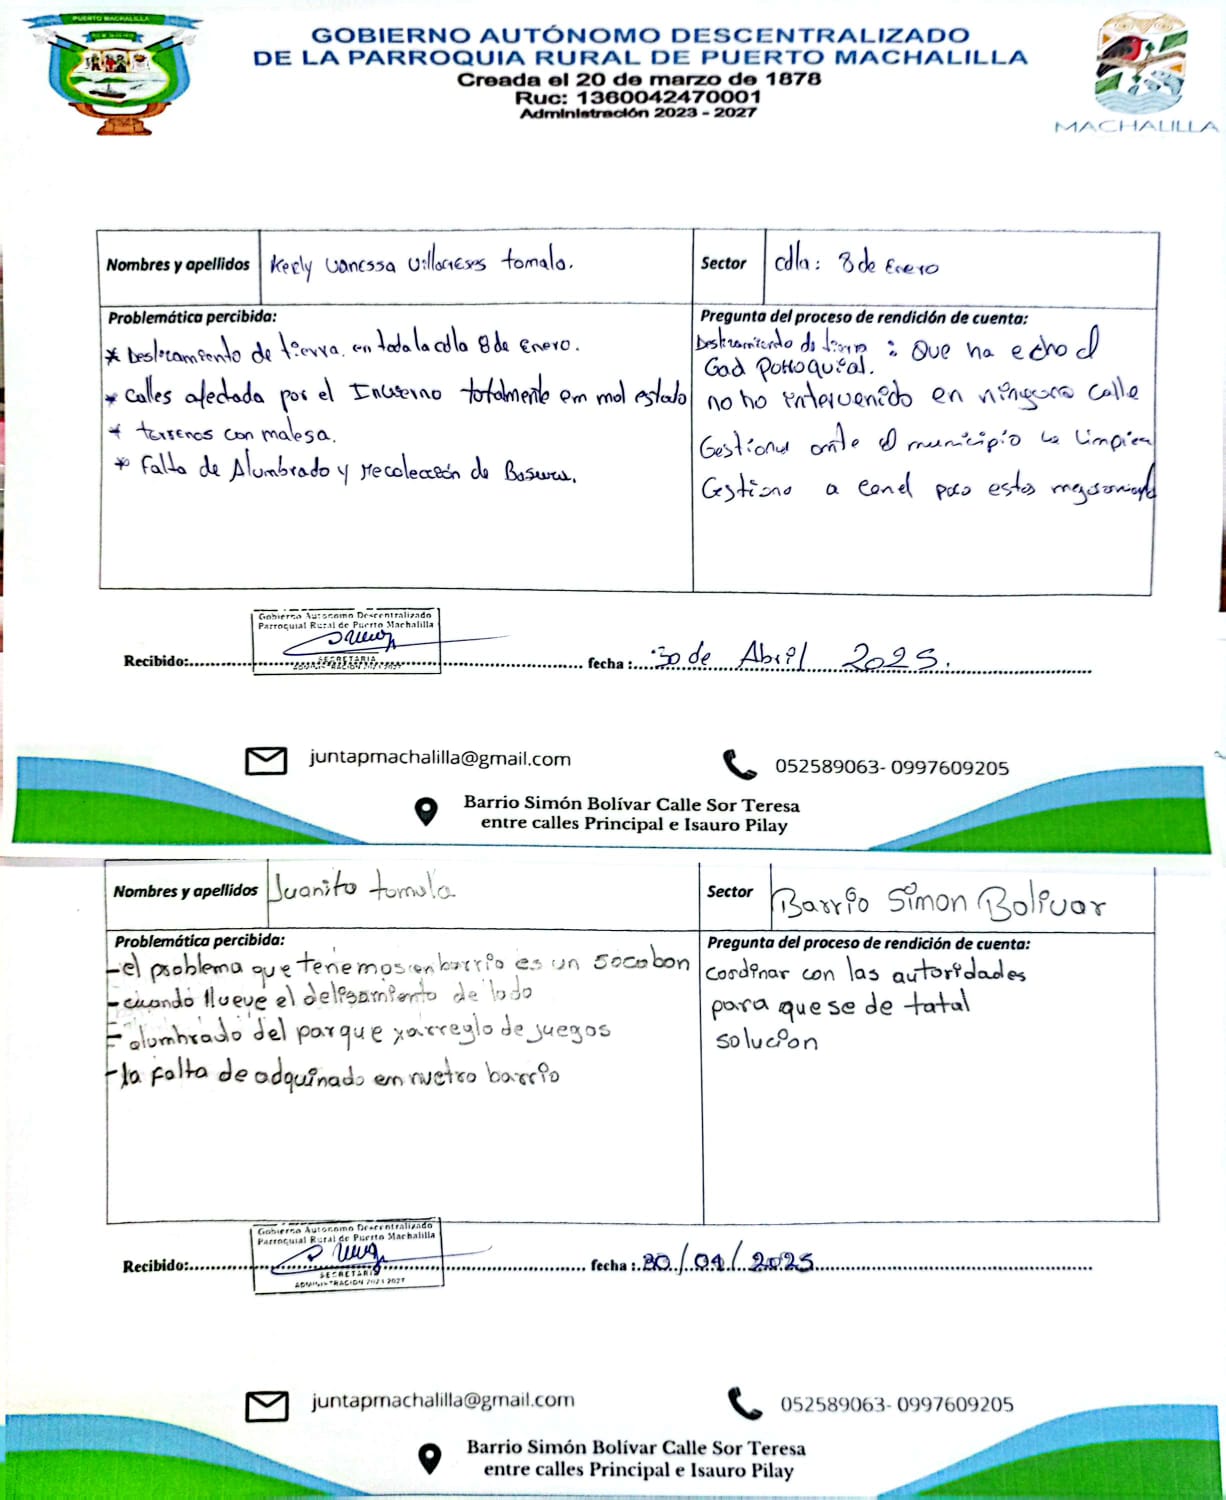 PUERTO MACHALILLA
GOBIERNO AUTÓNOMO DESCENTRALIZADO
DE LA PARROQUIA RURAL DE PUERTO MACHALILLA
Creada el 20 de marzo de 1878
Ruc: 1360042470001
Administración 2023 - 2027
MACHALILLA
Nombres y apellidos Kerly Vanessa Villacreses tomala. Sector cdla: 8 de Enero
Problemática percibida:
* Deslizamiento de tierra. en toda la cdla 8 de Enero.
* Calles afectada por el Invierno totalmente em mal estado
* terrenos con malesa.
* Falta de Alumbrado y recolección de Basura.
Pregunta del proceso de rendición de cuenta:
Deslizamiento de tierra : Que ha echo el
Gad Parroquial.
no ha intervenido en ninguna calle
Gestionar ante el municipio la limpieza
Gestiono a cnel para estos
Gobierno Autonomo Descentralizado
Parroquial Rural de Puerto Machalilla
SECRETARIA
ADMINISTRACION 2023 2027
Recibido: fecha : 30 de Abril 2025.
juntapmachalilla@gmail.com 052589063- 0997609205
Barrio Simón Bolívar Calle Sor Teresa
entre calles Principal e Isauro Pilay
Nombres y apellidos Juanito tomala Sector Barrio Simon Bolivar
Problemática percibida:
-el problema que tenemos en barrio es un socabon
-cuando llueve el delisamiento de lodo
- alumbrado del parque y arreglo de juegos
-la falta de adquinado em nuetro barrio
Pregunta del proceso de rendición de cuenta:
cordinar con las autoridades
para que se de tatal
solucion
Gobierno Autonomo Descentralizado
Parroquial Rural de Puerto Machalilla
SECRETARIA
ADMINISTRACION 2023 2027
Recibido: fecha : 30/04/2025
juntapmachalilla@gmail.com 052589063- 0997609205
Barrio Simón Bolívar Calle Sor Teresa
entre calles Principal e Isauro Pilay